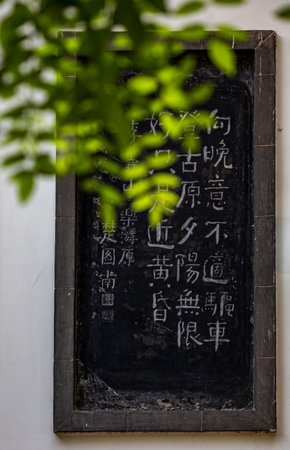 向晚意不適驅車
登古原夕陽無限
好只是近黃昏
李山樂游原
楚圖南